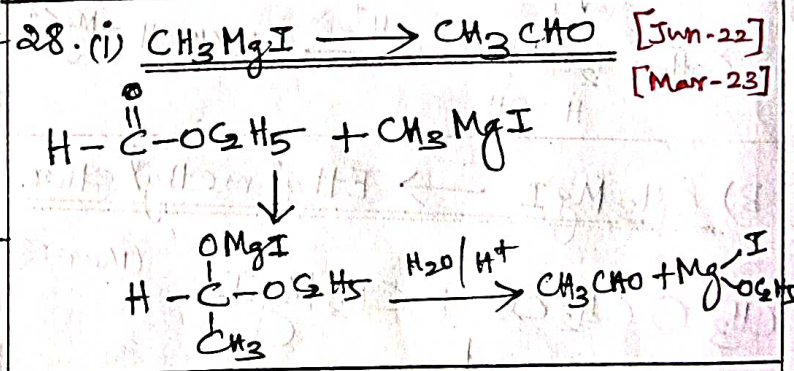 28. (i) CH3MgI ⟶ CH3CHO [Jun-22]
[Mar-23]
O
||
H-C-OC2H5 + CH3MgI
↓
OMgI
H-C-OC2H5 H2O/H+ ⟶ CH3CHO + Mg I OC2H5
CH3